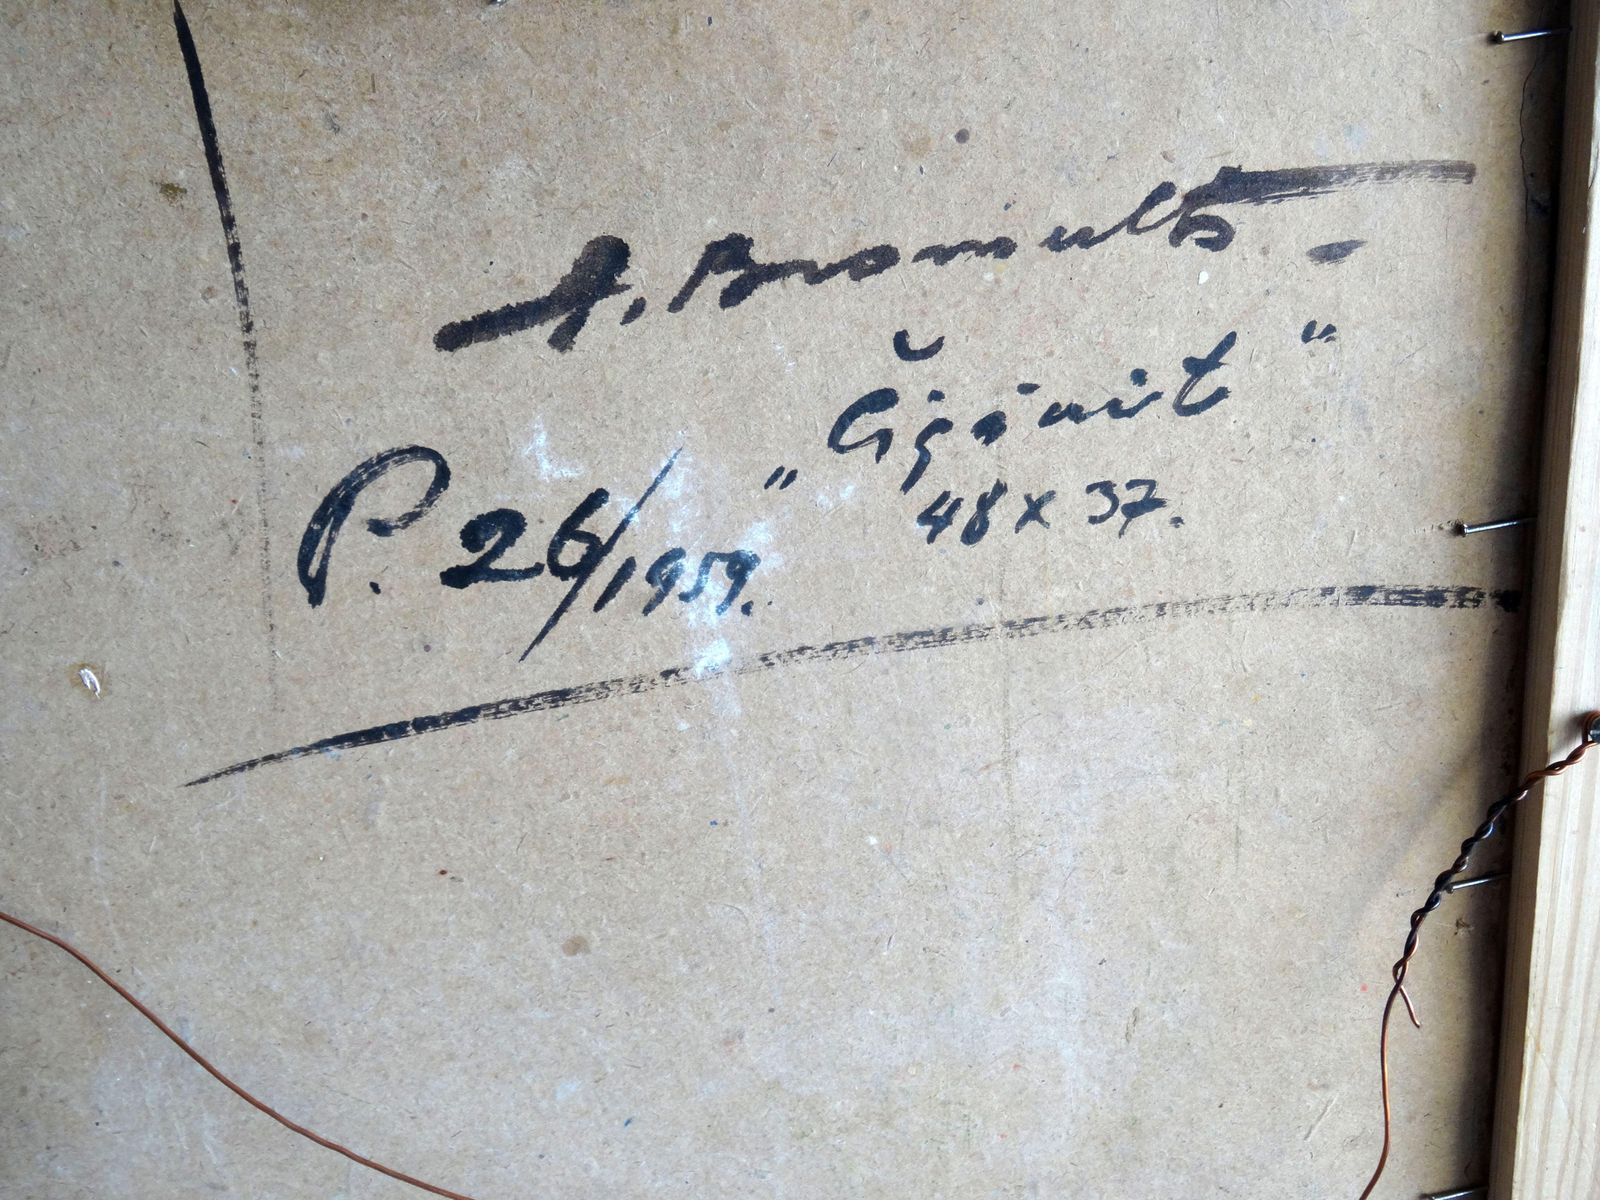 A. Bromults
"Čigānit"
P. 26/1959.
48 x 37.